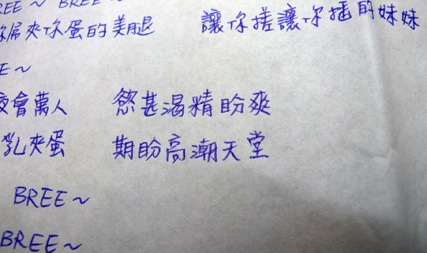 BREE～ BREE～
夾你蛋的美腿 讓你搓讓你插的妹妹
E～
會萬人 慾甚渴精盼爽
乳夾蛋 期盼高潮天堂
BREE～
BREE～